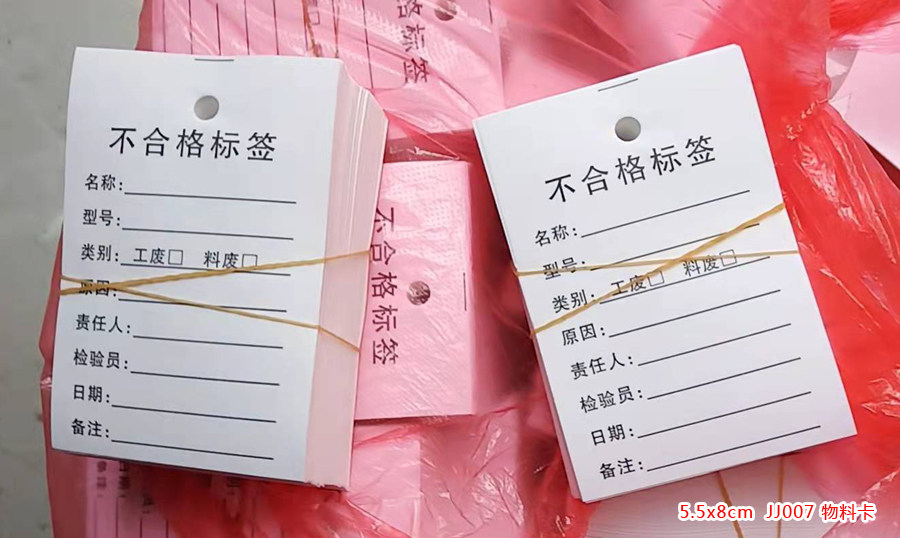 不合格标签
名称:
型号:
类别: 工废□ 料废□
原因:
责任人:
检验员:
日期:
备注:
不合格标签
名称:
型号:
类别: 工废□ 料废□
原因:
责任人:
检验员:
日期:
备注:
不合格标签
格标签
5.5x8cm JJ007 物料卡